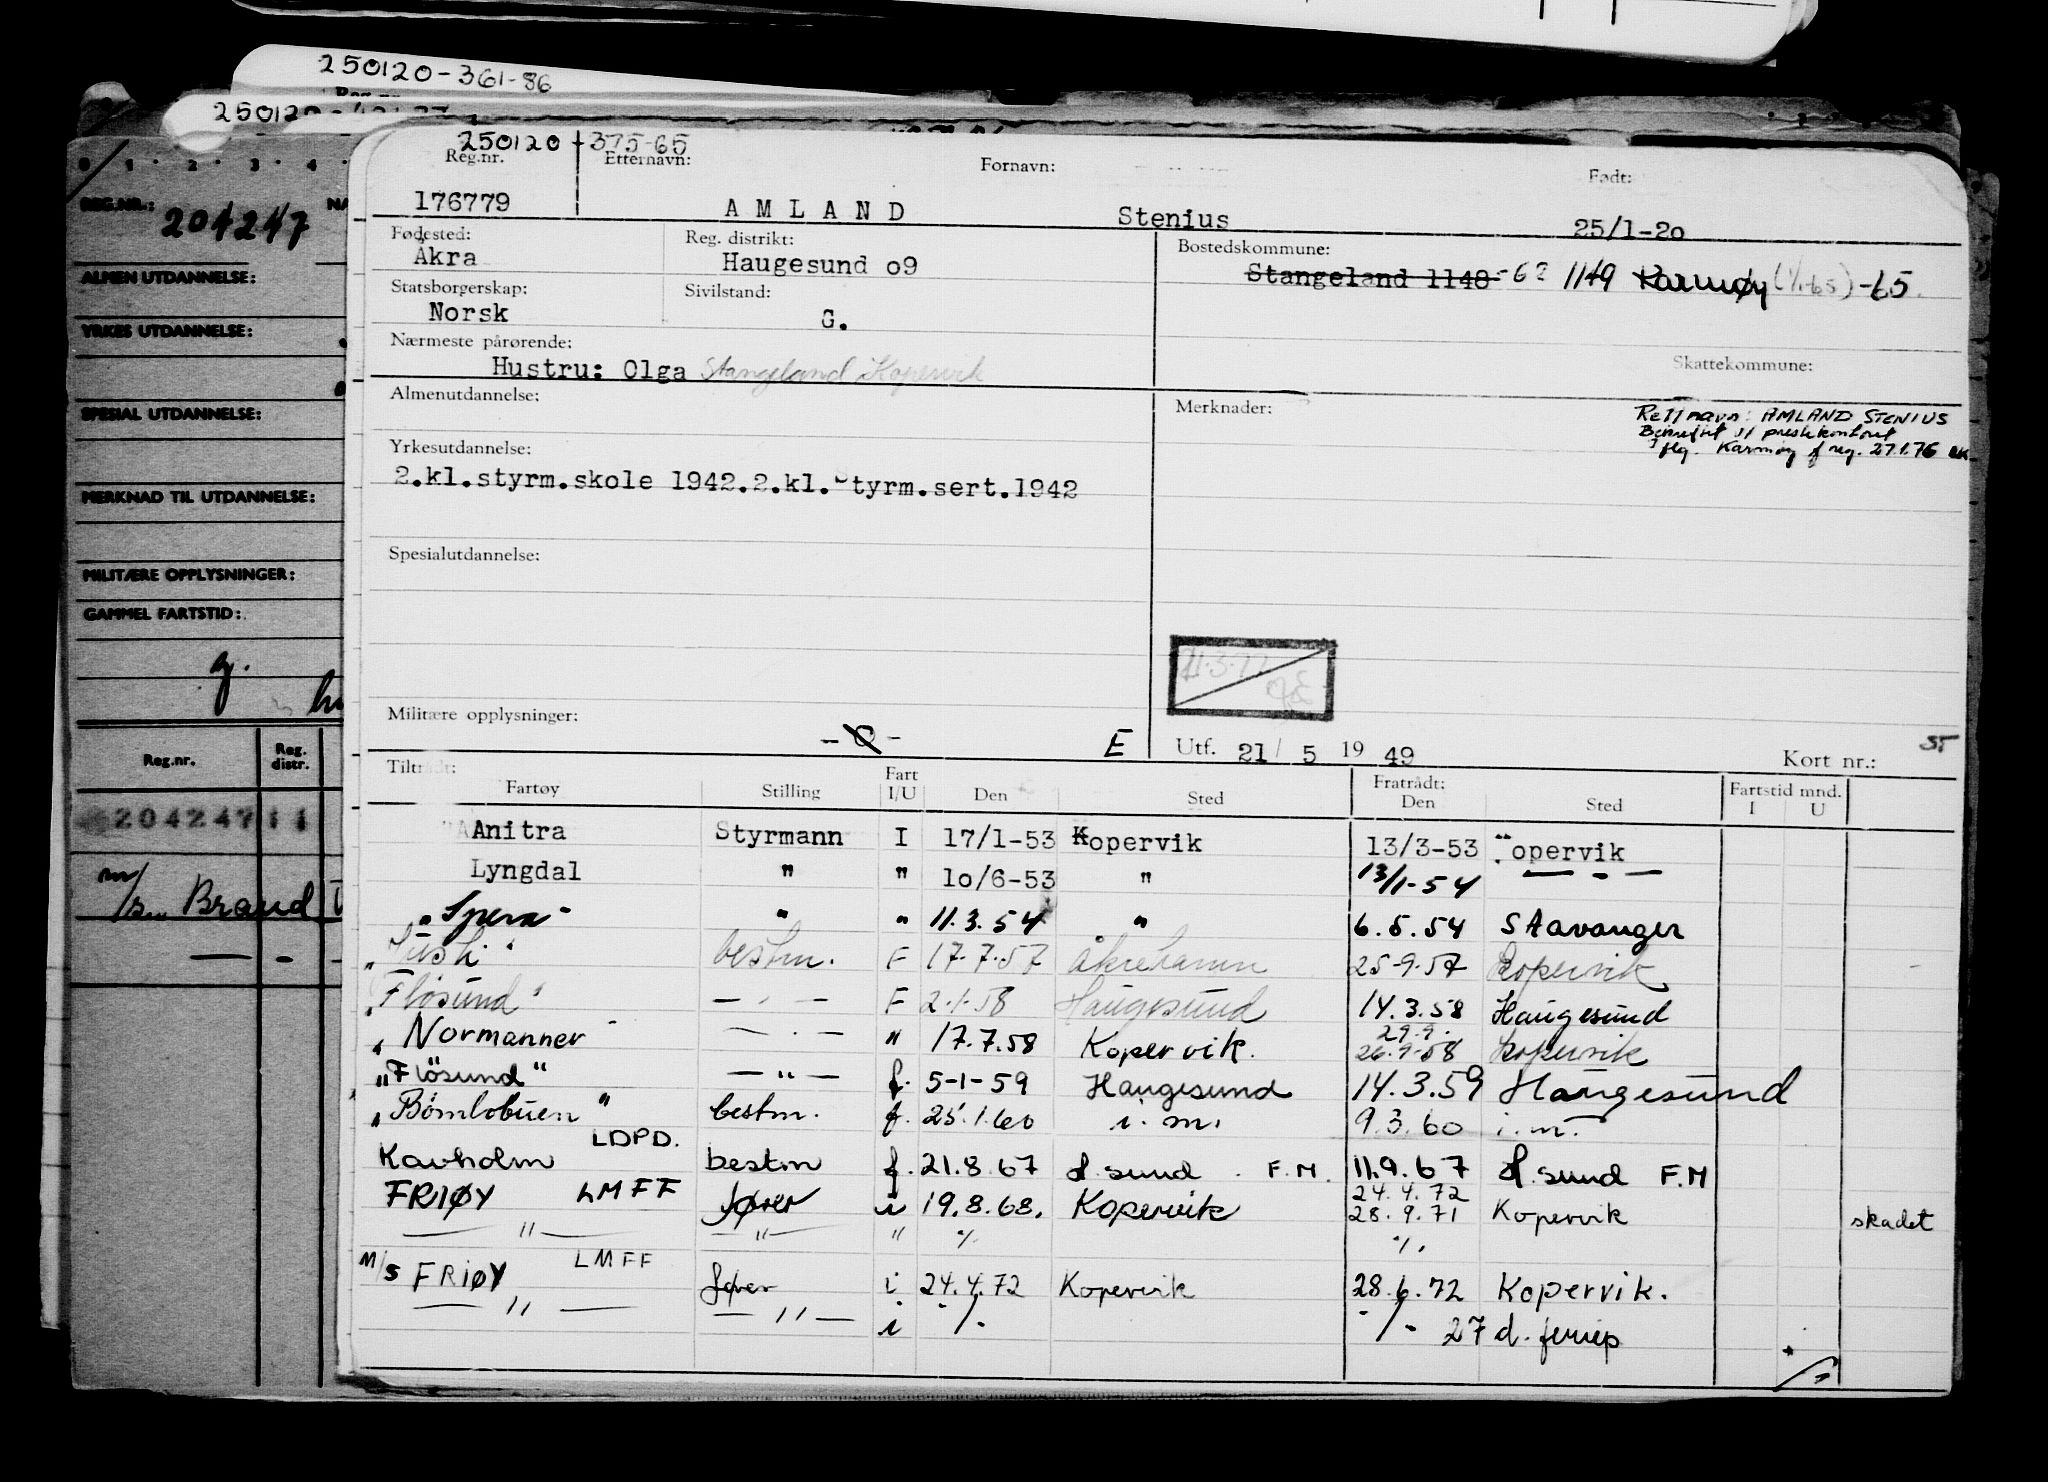 250120-361-86
250120
250120-375-65
Reg.nr. Etternavn: Fornavn: Født:
176779 AMLAND Stenius 25/1-20
Fødested: Reg. distrikt: Bostedskommune:
Åkra Haugesund 09 Stangeland 1148 -62 1149 Karmøy (1/1-65) -65.
Statsborgerskap: Sivilstand:
Norsk G.
Nærmeste pårørende: Skattekommune:
Hustru: Olga Stangeland Kopervik
Almenutdannelse: Merknader: Rett navn: AMLAND STENIUS
Bekreftet preskontoret
Iflg. Karmøy f reg. 27.1.76
Yrkesutdannelse:
2.kl.styrm.skole 1942.2.kl.Styrm.sert.1942
Spesialutdannelse:
11.3.77
Militære opplysninger: - 0 - E Utf. 21/ 5 1949 Kort nr.:
Tiltrådt: Fart Fratrådt: Fartstid mnd.
Fartøy Stilling I/U Den Sted Den Sted I U
Anitra Styrmann I 17/1-53 Kopervik 13/3-53 opervik
Lyngdal " " 10/6-53 " 13/1-54 — - —
"Spera" " " 11.3.54 " 6.5.54 Stavanger
bestm. F 17.7.57 Åkrehamn 25-9-57 Kopervik
"Fløsund" — " — F 2.1.58 Haugesund 14.3.58 Haugesund
"Normanner" — " — " 17.7.58 Kopervik. 29.9. 26.9-58 Kopervik
"Flösund" — " — f. 5-1-59 Haugesund 14.3.59 Haugesund
"Bømlobuen" bestm. f. 25.1.60 i. m. 9.3.60 i. m.
Kavholm LDPD. bestm f. 21.8.67 H.sund F.M. 11.9.67 H.sund F.M
FRIØY LMFF fører i 19.8.68. Kopervik 24.4.72 28.9.71 Kopervik skadet
— " — — " — " ./. ./.
M/S FRIØY LMFF fører i 24.4.72 Kopervik 28.6.72 Kopervik.
— " — — " — i ./. ./. 27 d. feriep
REG.NR.: 204247 NA
ALMEN UTDANNELSE:
YRKES UTDANNELSE:
SPESIAL UTDANNELSE:
MERKNAD TIL UTDANNELSE:
MILITÆRE OPPLYSNINGER:
GAMMEL FARTSTID:
Reg.nr. Reg. distr.
204247 11
m/s Brand
— -